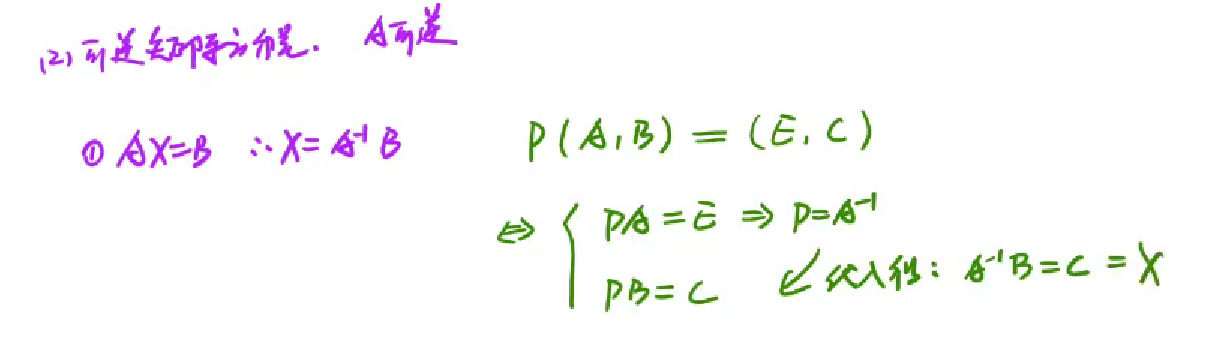 (2) 可逆矩阵方程. A可逆
① AX=B ∴X=A⁻¹B
P(A,B)=(E,C)
⇔ { PA=E ⇒ P=A⁻¹
PB=C ↙代入得: A⁻¹B=C=X